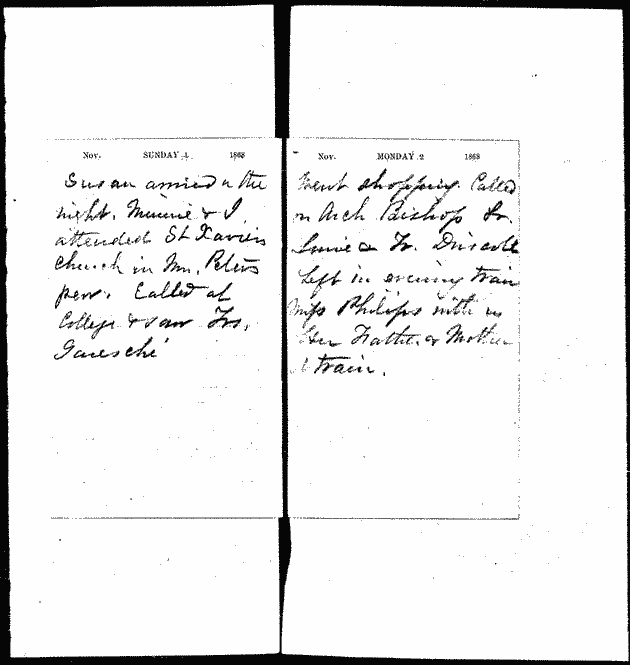 Nov. SUNDAY 1 1868
Susan arrived in the
night. Minnie & I
attended St Xaviers
Church in Mrs. Peters
pew. Called at
College & saw Frs.
Garesché
Nov. MONDAY 2 1868
Went shopping. Called
on Arch Bishop Fr.
& Fr. Driscoll
Left in evening train
Miss Philips with us
Her Father & Mother
train.